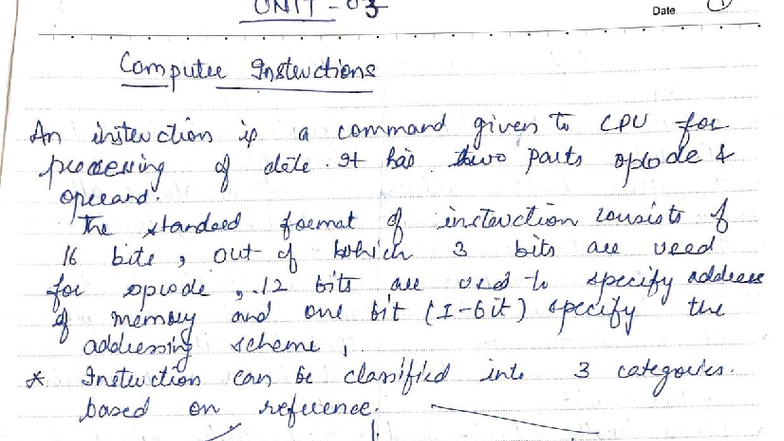 UNIT - 03
Date 1
Computer Instructions
An instruction is a command given to CPU for
processing of data. It has two parts opcode &
operand.
The standard format of instruction consists of
16 bits, out of which 3 bits are used
for opcode, 12 bits are used to specify address
of memory and one bit (I-bit) specify the
addressing scheme,
* Instruction can be classified into 3 categories.
based on reference.